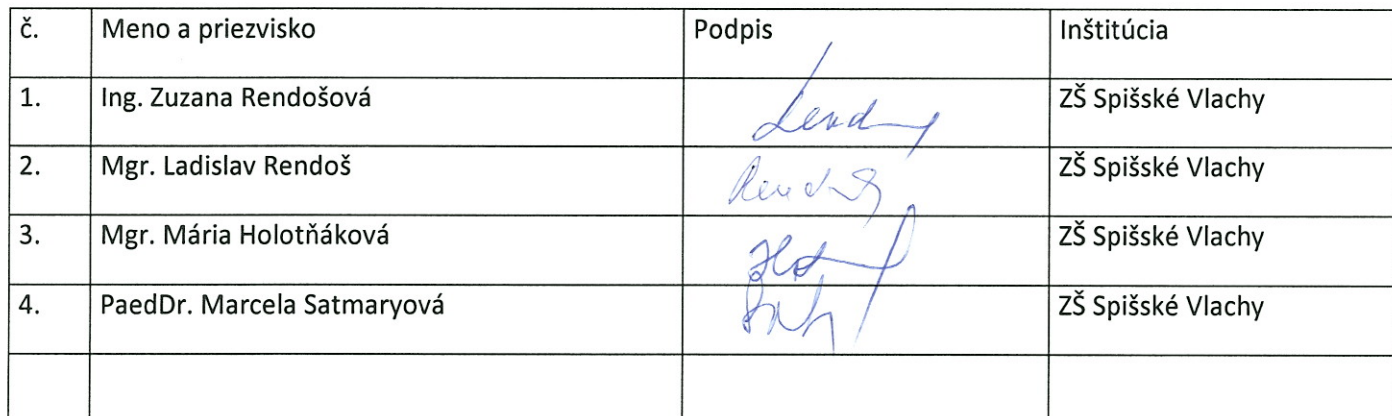 č. Meno a priezvisko Podpis Inštitúcia
1. Ing. Zuzana Rendošová ZŠ Spišské Vlachy
2. Mgr. Ladislav Rendoš ZŠ Spišské Vlachy
3. Mgr. Mária Holotňáková ZŠ Spišské Vlachy
4. PaedDr. Marcela Satmaryová ZŠ Spišské Vlachy